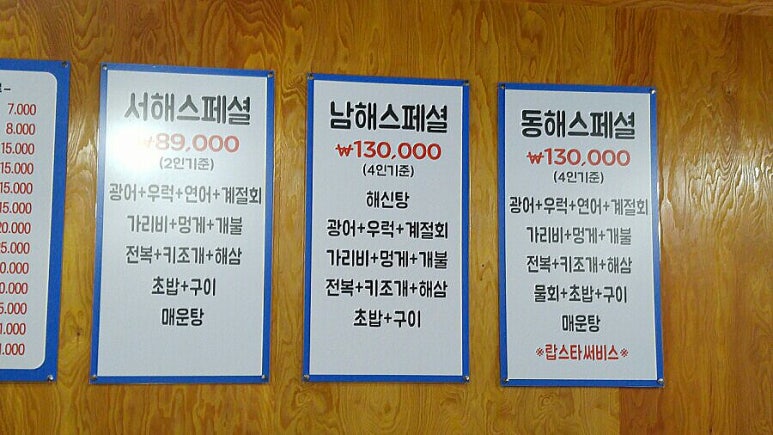 7.000
8.000
15.000
15.000
15.000
서해스페셜
₩89,000
(2인기준)
광어+우럭+연어+계절회
가리비+멍게+개불
전복+키조개+해삼
초밥+구이
매운탕
남해스페셜
₩130,000
(4인기준)
해신탕
광어+우럭+계절회
가리비+멍게+개불
전복+키조개+해삼
초밥+구이
동해스페셜
₩130,000
(4인기준)
광어+우럭+연어+계절회
가리비+멍게+개불
전복+키조개+해삼
물회+초밥+구이
매운탕
※랍스타써비스※